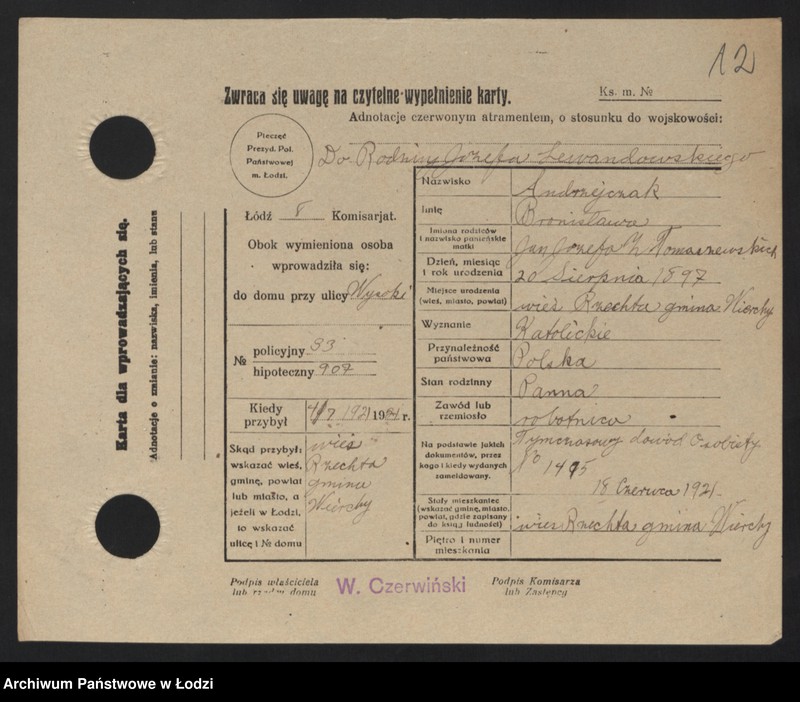 12
Zwraca się uwagę na czytelne wypełnienie karty.
Ks. m. №
Adnotacje czerwonym atramentem, o stosunku do wojskowości:
Pieczęć
Prezyd. Pol.
Państwowej
m. Łodzi.
Do Rodziny Józefa Lewandowskiego
Karta dla wprowadzających się.
Adnotacje o zmianie: nazwiska, imienia, lub stanu
Łódź 8 Komisarjat.
Obok wymieniona osoba
wprowadziła się:
do domu przy ulicy Wysoki
№ policyjny 33
hipoteczny 907
Kiedy
przybył
4/7 1921 1924 r.
Skąd przybył:
wskazać wieś,
gminę, powiat
lub miasto, a
jeżeli w Łodzi,
to wskazać
ulicę i № domu
wieś
Rzechta
gmina
Wierchy
Nazwisko Andrzejczak
Imię Bronisława
Imiona rodziców
i nazwisko panieńskie
matki
Jan Józefa z Tomaszewskich
Dzień, miesiąc
i rok urodzenia
20 Sierpnia 1897
Miejsce urodzenia
(wieś, miasto, powiat)
wieś Rzechta gmina Wierchy
Wyznanie Katolickie
Przynależność
państwowa
Polska
Stan rodzinny Panna
Zawód lub
rzemiosło
robotnica
Na podstawie jakich
dokumentów, przez
kogo i kiedy wydanych
zameldowany.
Tymczasowy dowód Osobisty
No 1495
18 Czerwca 1921
Stały mieszkaniec
(wskazać gminę, miasto,
powiat, gdzie zapisany
do ksiąg ludności)
wieś Rzechta gmina Wierchy
Piętro i numer
mieszkania
Podpis właściciela
lub rządm domu
W. Czerwiński
Podpis Komisarza
lub Zastępcy
Archiwum Państwowe w Łodzi